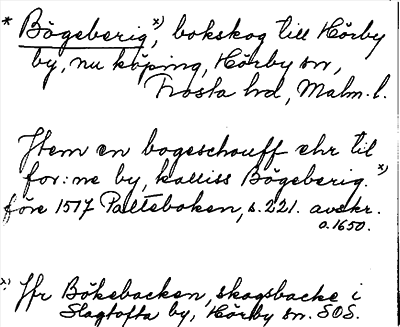 * Bögeberig, x) bokskog till Hörby
by, nu köping, Hörby sn,
Frosta hd, Malm. l.
Item en bogeschouff ehr til
for:ne by, kalliss Bögeberig. x)
före 1517 Palteboken, s. 221. avskr.
o. 1650.
x) Jfr Bökebacken, skogsbacke i
Slagtofta by, Hörby sn. SOS.